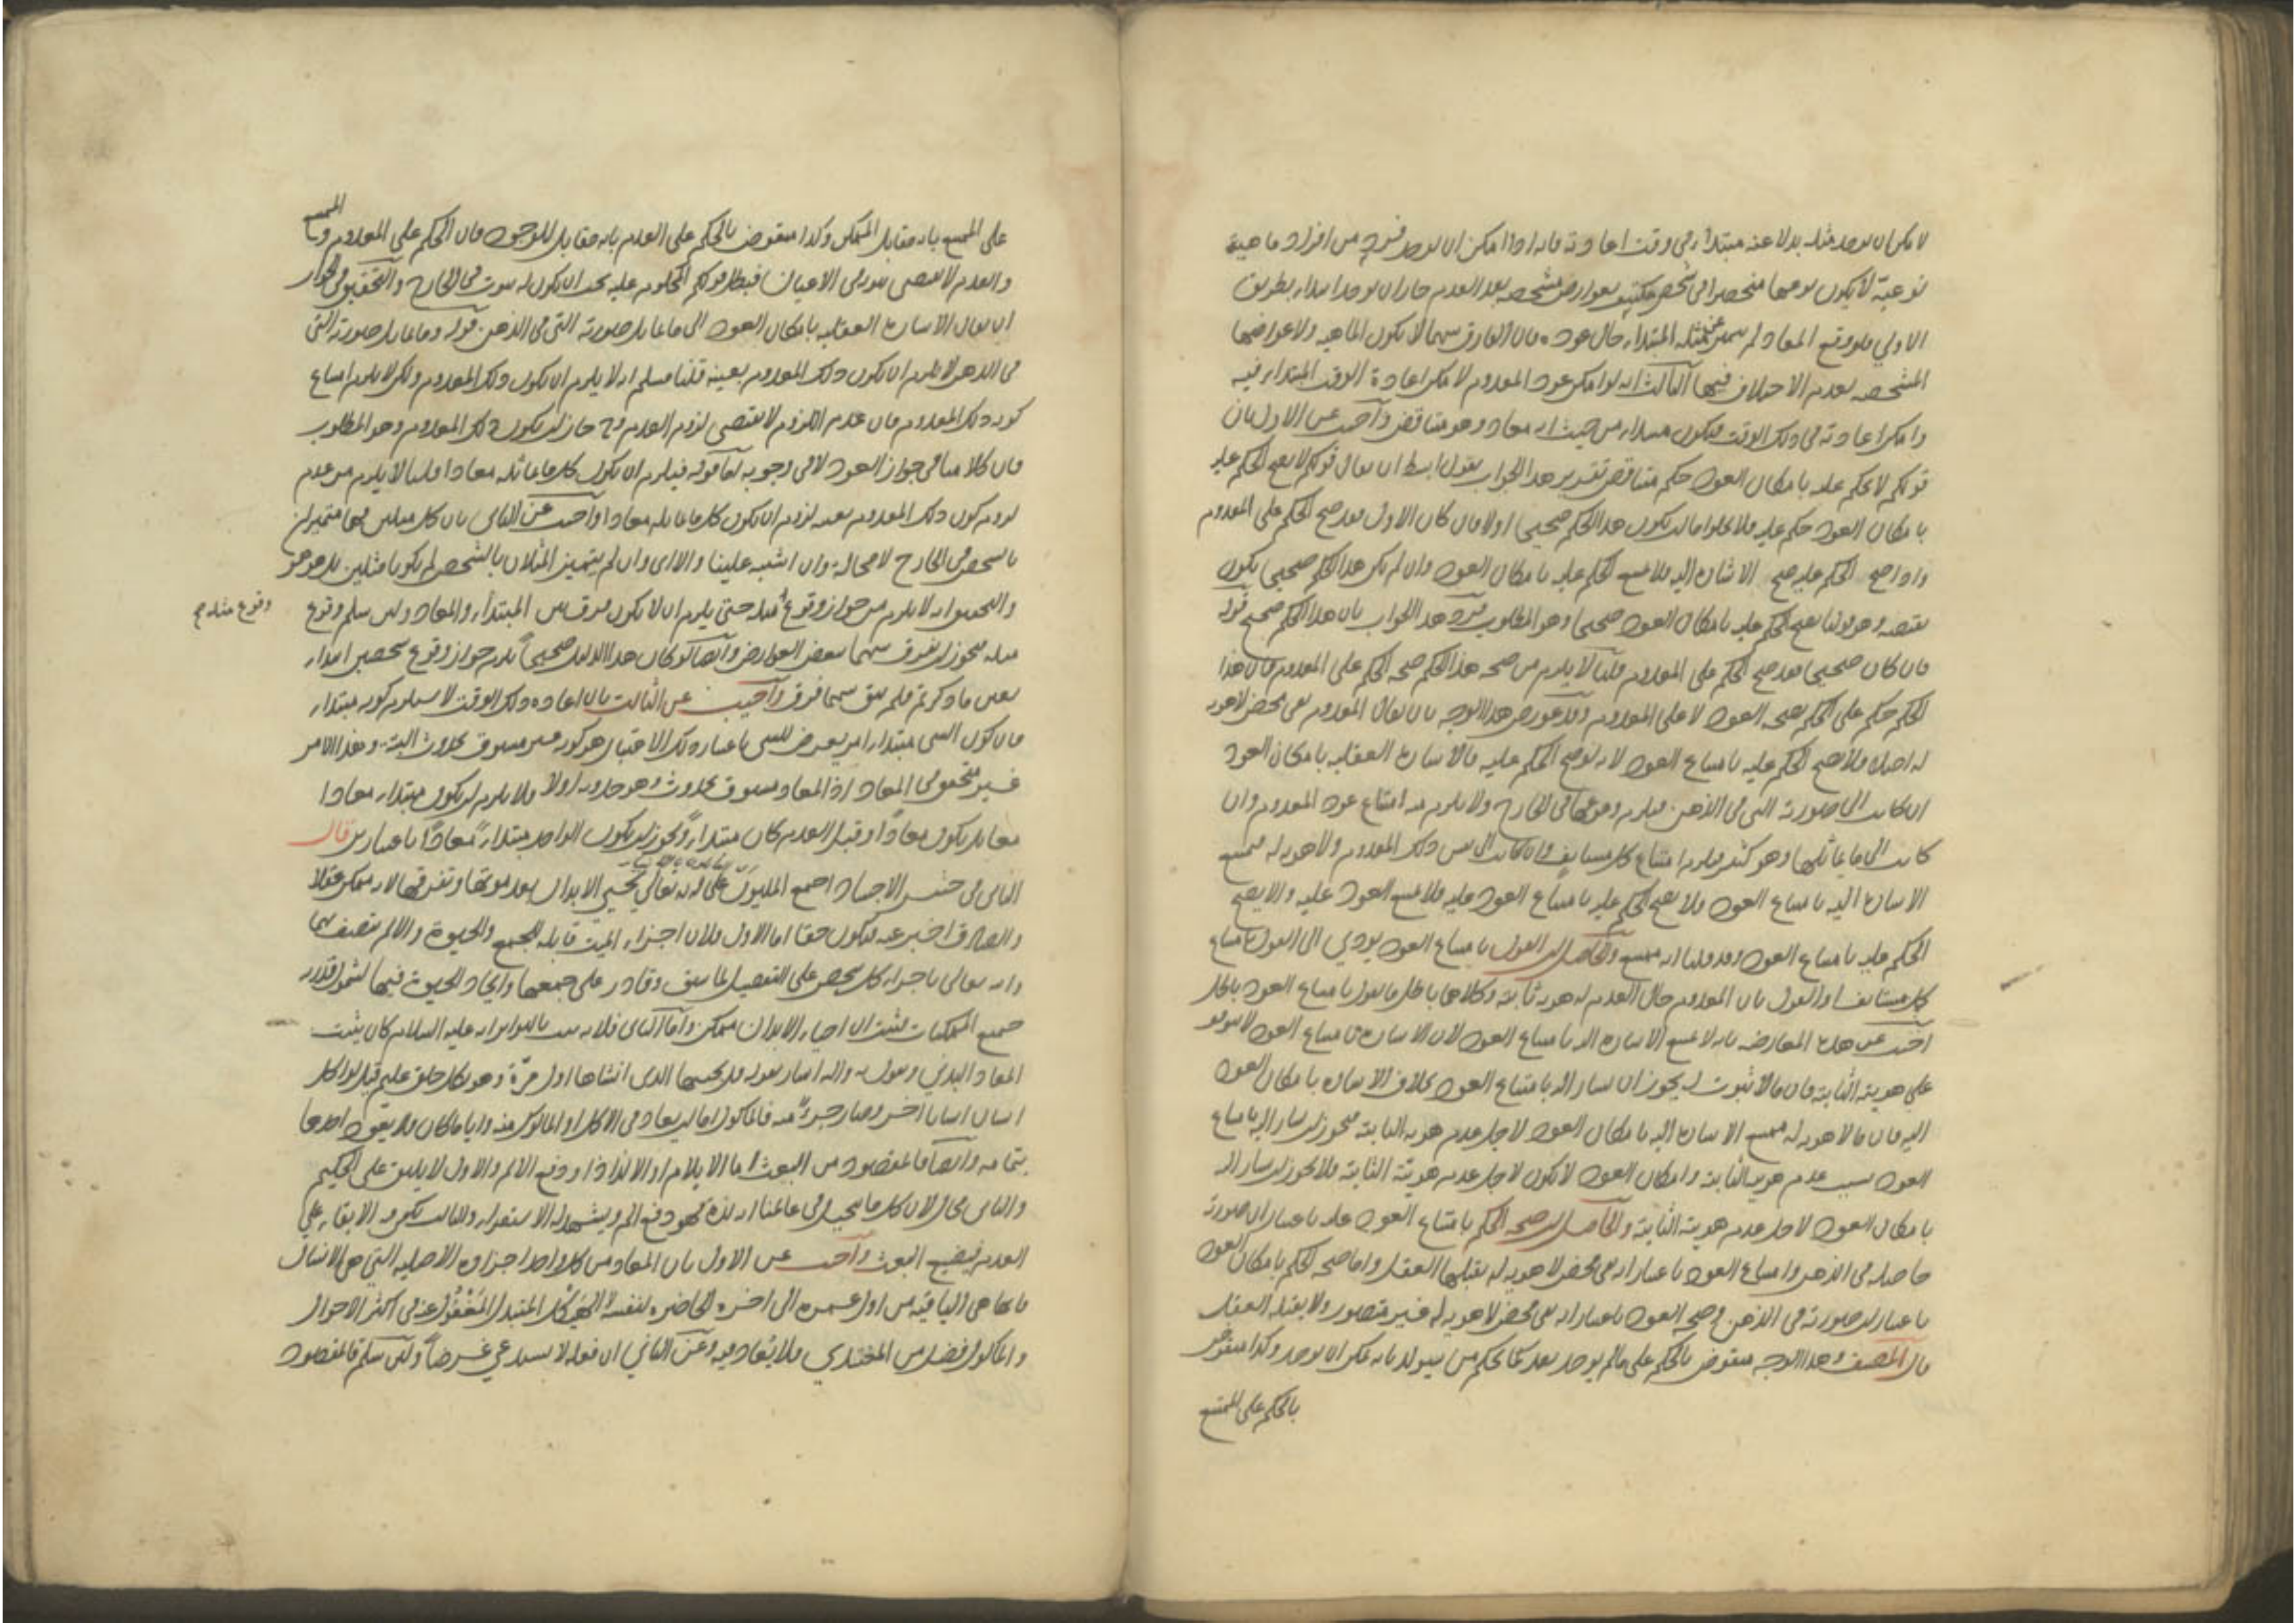 لا مكن ان يوجد مثله بدلا عنه مبتدأ في وقت اعادته فانه اذا امكن ان يوجد فرد من افراد ماهية
نوعية لا يكون نوعها منحصرا في شخص مكتنف بعوارض مشخصه بعد العدم جاز ان يوجد ابتداء بطريق
الاولي فلو وقع المعاد لم يتميز عن مثله المبتداء حال عوده فان الفارق بينهما لا يكون الماهيه ولا عوارضها
المشخصه لعدم الاختلاف فيها الثالث انه لو امكن عود المعدوم لامكن اعادة الوقت المبتداء فيه
وامكن اعادته في ذلك الوقت فيكون مبتداء من حيث انه معاد وهو متناقض واجيب عن الاول بان
قولكم لا يحكم عليه بامكان العود حكم متناقض تقرير هذا الجواب بقول ابسط ان يقال قولكم لا يصح الحكم عليه
بامكان العود حكم عليه فلا يخلو اما ان يكون هذا الحكم صحيحا اولا فان كان الاول فقد صح الحكم على المعدوم
واذا صح الحكم عليه صح الاشارة اليه فلا يمتنع الحكم عليه بامكان العود وان لم يكن هذا الحكم صحيحا يكون
نقيضه وهو قولنا يصح الحكم عليه بامكان العود صحيحا وهو المطلوب فيرد هذا الجواب بان هذا الحكم صحيح قوله
فان كان صحيحا فقد صح الحكم على المعدوم قلنا لا يلزم من صحه هذا الحكم صحه الحكم على المعدوم فان هذا
الحكم حكم على الحكم بصحه العود لا على المعدوم وقد عورض هذا الوجه بان يقال المعدوم نفى محض لا هويه
له اصلا فلا يصح الحكم عليه بامتناع العود لانه لو صح الحكم عليه فالاشارة العقليه بامكان العود
ان كانت الى صورته التى فى الذهن فيلزم وقوعها فى الخارج ولا يلزم منه امتناع عود المعدوم وان
كانت الى ما يماثلها وهو كثير فيلزم امتناع كل مستانف وان كانت الى نفس ذلك المعدوم ولا هويه له يمتنع
الاشارة اليه بامتناع العود ولا يصح الحكم عليه بامتناع العود عليه فلا يمتنع العود عليه والا يصح
الحكم عليه بامتناع العود وقد قلنا انه ممتنع والحاصل ان القول بامتناع العود يودي الى القول بامتناع
كل مستانف او القول بان المعدوم حال العدم له هويه ثابته وكلاهما باطل فالقول بامتناع العود باطل
اجيب عن هذه المعارضه بانه لا يمتنع الاشاره اليه بامتناع العود لان الاشاره بامتناع العود لا يتوقف
على هويته الثابته فان ما لا ثبوت له يجوز ان يشار اليه بامتناع العود بخلاف الاشاره بامكان العود
اليه فان ما لا هويه له يمتنع الاشارة اليه بامكان العود لاجل عدم هويه الثابته فيجوز ان يشار اليه بامتناع
العود بسبب عدم هويته الثابته وامكان العود لا يكون لاجل عدم هويته الثابته فلا يجوز ان يشار اليه
بامكان العود لاجل عدم هويته الثابته والحاصل ان صحه الحكم بامتناع العود عليه باعتبار ان صورته
حاصله فى الذهن وامتناع العود باعتبار انه نفى محض لا هويه له يقبلها العقل واما صحه الحكم بامكان العود
باعتبار ان صورته فى الذهن وصحه العود باعتبار انه نفى محض لا هويه له غير متصور ولا يقبله العقل
قال المصنف وهذا الوجه منقوض بالحكم على ما لم يوجد بعد كما يحكم من سيولد بانه يمكن ان يوجد وكذا منقوض
بالحكم على الممتنع
على الممتنع بانه مقابل الممكن وكذا منقوض بالحكم على العدم بانه مقابل للوجود فان الحكم على المعدوم والممتنع
والعدم لا يقتضى ثبوته فى الاعيان فبطل قولكم المحكوم عليه يجب ان يكون له ثبوت فى الخارج والتحقيق فى الجواب
ان يقال الاشارة العقليه بامكان العود الى ما يماثل صورته التى فى الذهن قوله وما يماثل صورته التى
فى الذهن لا يلزم ان يكون ذلك المعدوم بعينه قلنا مسلم انه لا يلزم ان يكون ذلك المعدوم ولكن لا يلزم امتناع
كونه ذلك المعدوم فان عدم اللزوم لا يقتضى لزوم العدم وح جاز ان يكون ذلك المعدوم وهو المطلوب
فان كلامنا فى جواز العود لا فى وجوبه اما قوله فيلزم ان يكون كل ما يماثله معادا قلنا لا يلزم من عدم
لزوم كون ذلك المعدوم بعينه لزوم ان يكون كل ما يماثله معادا واجيب عن الثانى بان كل مثلين فهما متميزان
بالشخص فى الخارج لا محاله وان اشتبه علينا والا اى وان لم يتميز المثلان بالشخص لم يكونا مثلين بل هو هو
والتحقيق انه لا يلزم من جواز وقوع مثله حتى يلزم ان لا يكون فرق بين المبتدأ والمعاد ولئن سلم وقوع
وقوع مثله صح
مثله فيجوز ان يفرق بينهما ببعض العوارض وايضا لو كان هذا الدليل صحيحا يلزم جواز وقوع شخصين ابتداء
بعين ما ذكرتم فلم يبق بينهما فرق واجيب عن الثالث بان اعاده ذلك الوقت لا يستلزم كونه مبتداء
فان كون الشى مبتداء امر يعرض للشى باعتبار وذلك الاعتبار هو كونه غير مسبوق بحدوث البتة وهذا الامر
غير متحقق فى المعاد اذ المعاد مسبوق بحدوث وهو حدوثه اولا فلا يلزم ان يكون مبتداء معادا
معا بل يكون معادا وقبل العدم كان مبتداء ويجوز ان يكون الواحد مبتداء معادا باعتبارين قال
الثانى فى حشر الاجساد اجمع المليون على انه تعالي يحيي الابدان بعد موتها وتفرقها لانه ممكن عقلا
والصادق اخبر عنه فيكون حقا اما الاول فلان اجزاء الميت قابله للجمع والحيوة والا لم يتصف بها
وانه تعالى باجزاء كل شخص على التفصيل لما سبق وقادر على جمعها وايجاد الحيوة فيها لشمول قدرته
جميع الممكنات فثبت ان احياء الابدان ممكن واما الثانى فلانه ثبت بالتواتر انه عليه السلام كان يثبت
المعاد البدني ويقول به واليه اشار بقوله قل يحييها الذى انشاها اول مرة وهو بكل خلق عليم قيل لو اكل
انسان انسانا اخر وصار جزءا منه فالماكول اما ان يعاد فى الاكل او الماكول منه وايا ما كان فلا يعود احدهما
بتمامه وايضا فالمقصود من البعث اما الايلام او الالذاذ او دفع الالم والاول لا يليق على الحكيم
والثانى محال لان كل ما يتخيل فى عالمنا انه لذة فهو دفع الم ويشهد له الاستقراء والثالث يكفى فيه الابقاء علي
العدم فيضيع البعث واجيب عن الاول بان المعاد من كل واحد اجزاؤه الاصليه التي هى الانسان
فانها هى الباقيه من اول عمره الى اخره الحاضره لنفسه لا الهيكل المتبدل المغفول عنه فى اكثر الاحوال
والماكول فضل من المغتذي فلا يعاد فيه وعن الثاني ان فعله لا يستدعي غرضا ولئن سلم فالمقصود